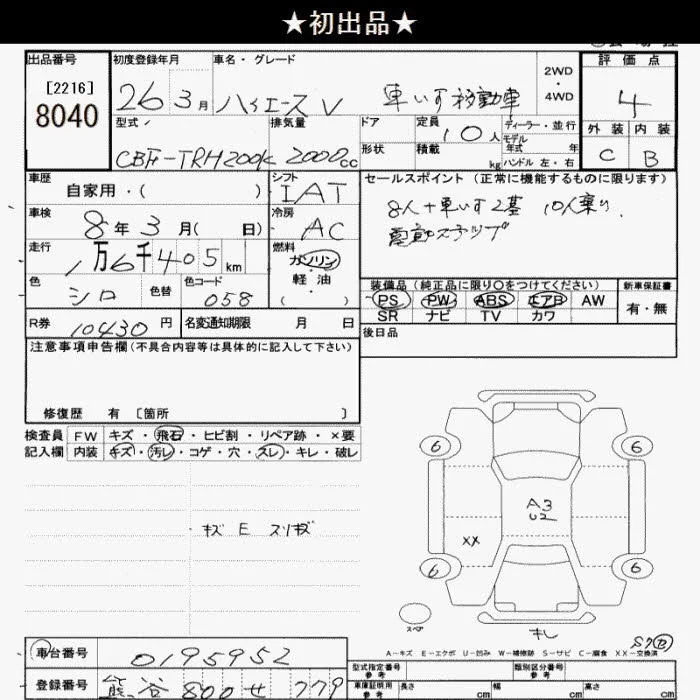 ★初出品★
出品番号
[2216]
8040
初度登録年月
26 3月
車名・グレード
ハイエースV 車いす移動車
2WD
・
4WD
評価点
4
外装 内装
C B
型式
CBF-TRH200K
排気量
2000cc
ドア
形状
定員
10人
積載
kg
ディーラー・並行
モデル
年式 年
ハンドル 左・右
車歴
自家用・( )
シフト
IAT
セールスポイント(正常に機能するものに限ります)
8人+車いす2基 10人乗り
電動ステップ
車検
8年3月( 日)
冷房
AC
走行
1万6千405km
燃料
ガソリン
・
軽油
・
( )
色
シロ
色替
色コード
058
装備品(純正品に限り○をつけてください)
PS PW ABS エアB AW
SR ナビ TV カワ
新車保証書
有・無
R券
10430円
名変通知期限 月 日
後日品
注意事項申告欄(不具合内容等は具体的に記入して下さい)
修復歴 有 〔箇所 〕
検査員
記入欄
FW キズ・飛石・ヒビ割・リペア跡・×要
内装 キズ・汚レ・コゲ・穴・スレ・キレ・破レ
キズ E スリキズ
6 6
A3
U2
XX
6 6
スペア
キレ
A-キズ E-エクボ U-凹み W-補修跡 S-サビ C-腐食 XX-交換済
車台番号
0195952
登録番号
熊谷 800 せ 779
型式指定番号
参考
類別区分番号
参考
車庫証明用
参考
長さ cm 幅 cm 高さ cm